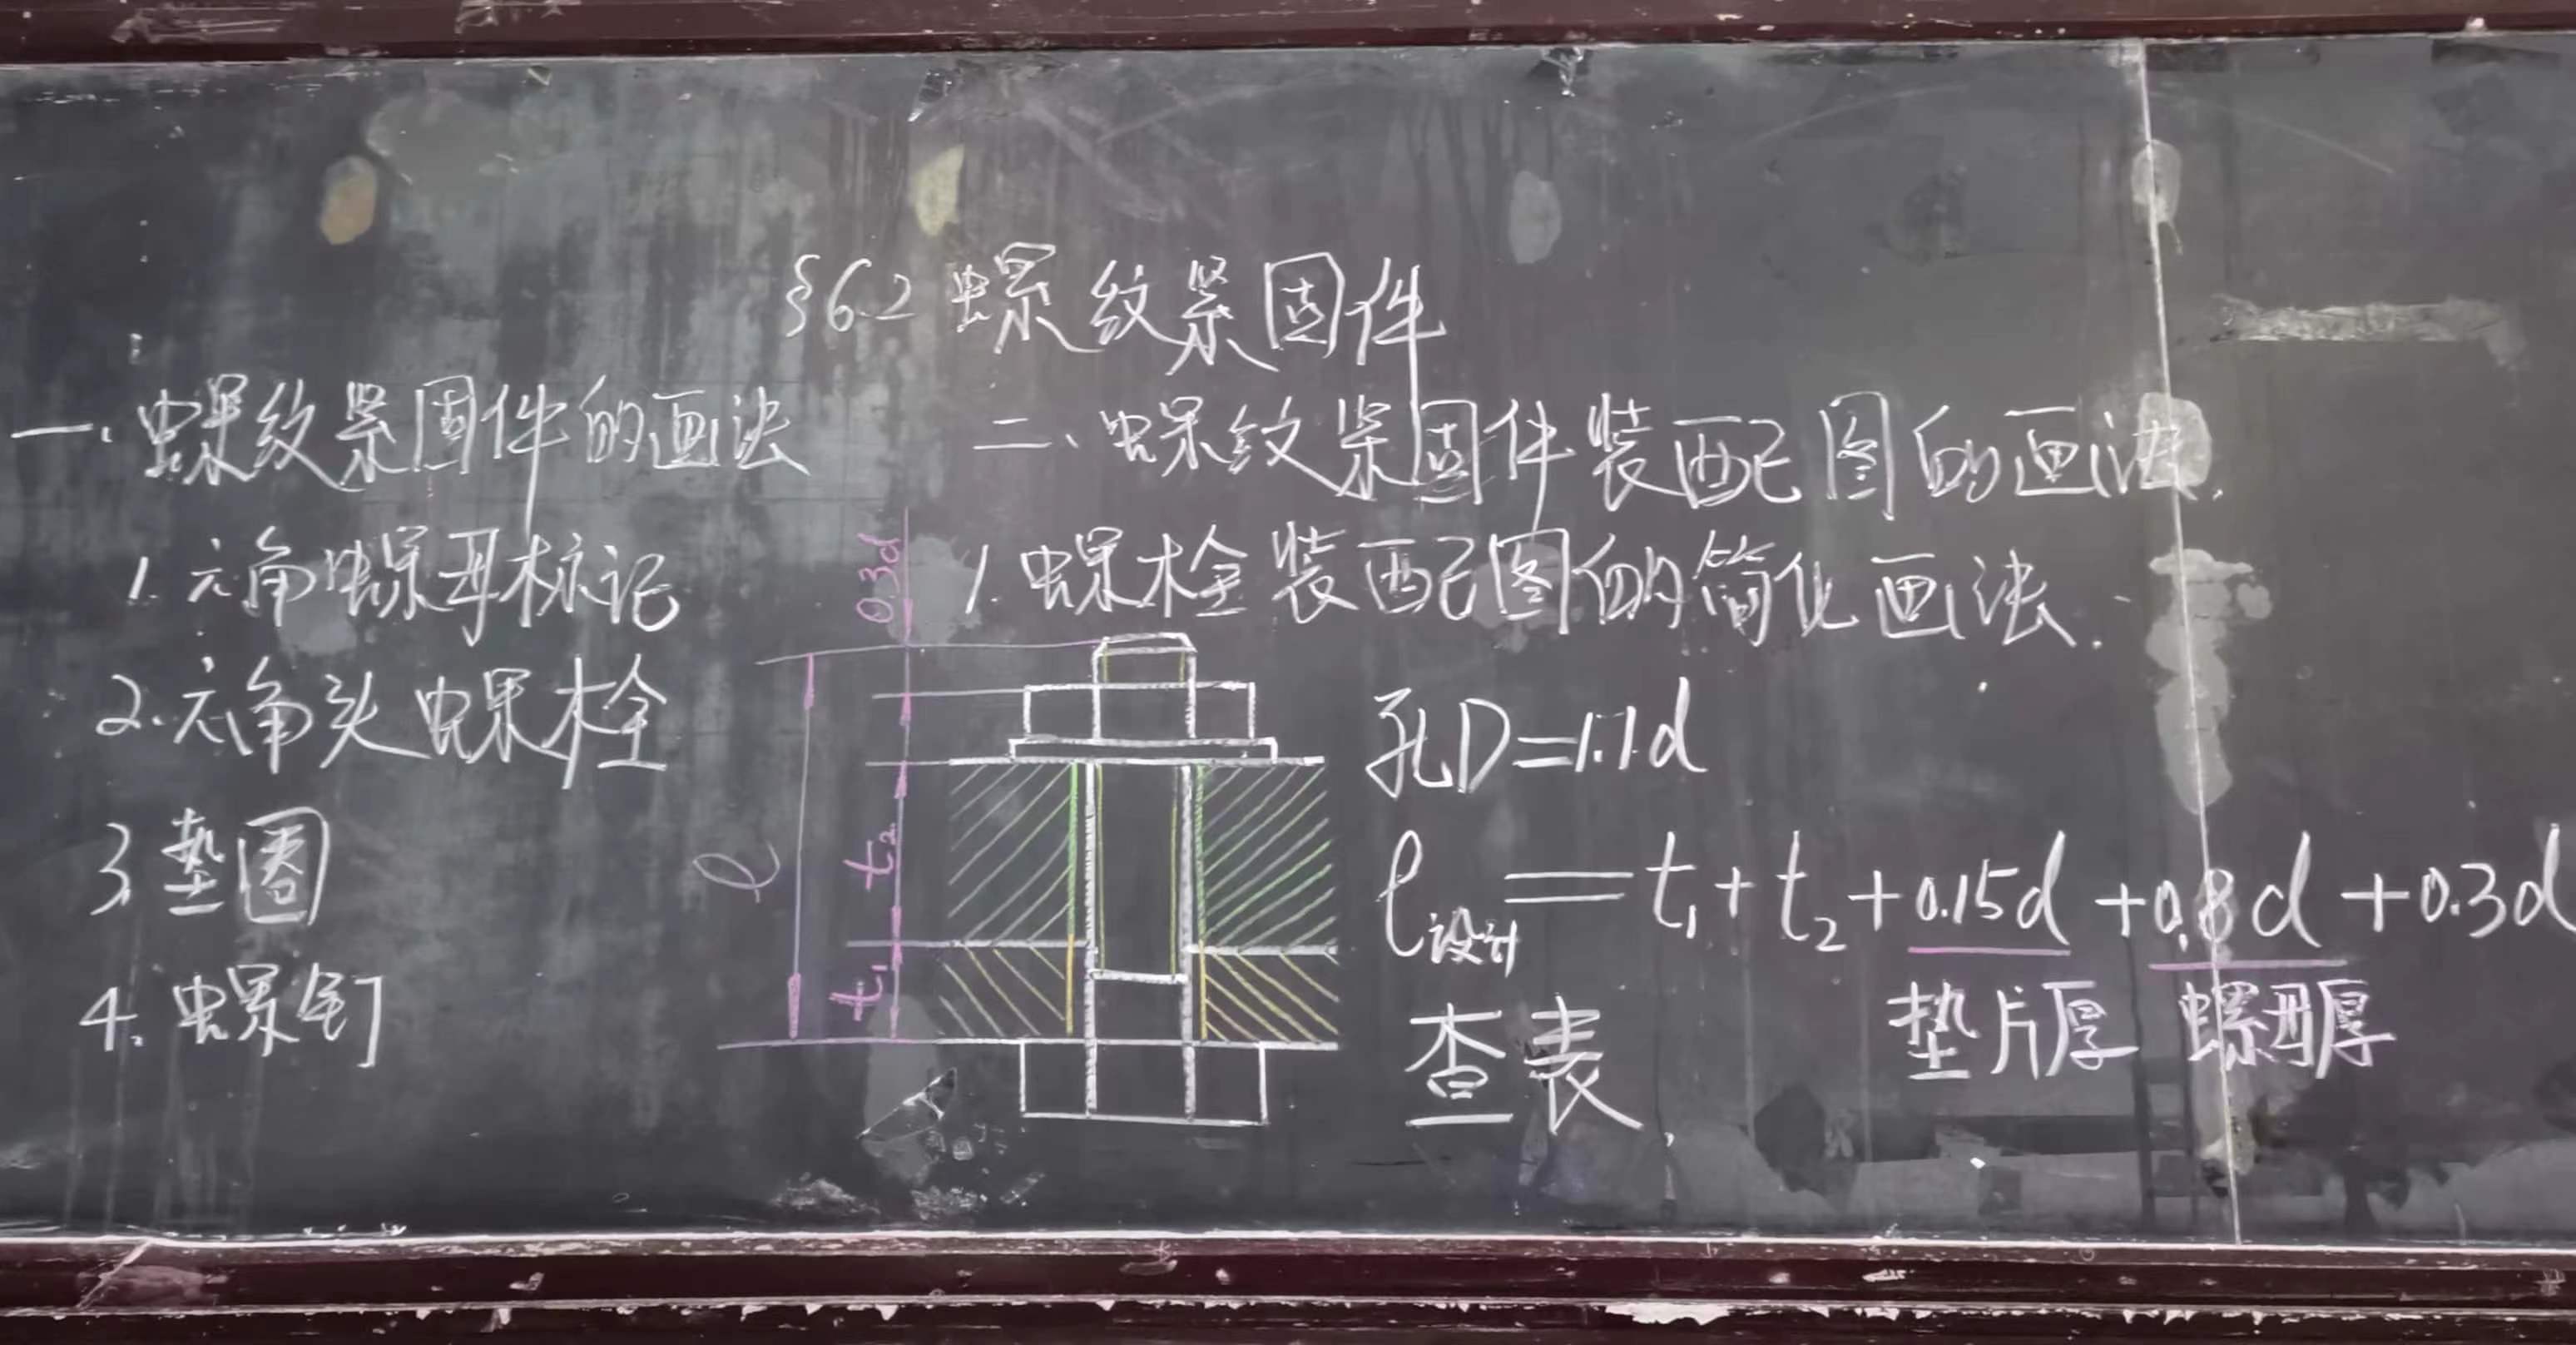 §6.2 螺纹紧固件
一、螺纹紧固件的画法
1. 六角螺母标记
2. 六角头螺栓
3. 垫圈
4. 螺钉
二、螺纹紧固件装配图的画法.
1. 螺栓装配图的简化画法.
0.3d
l
t₂
t₁
孔D=1.1d
l设计=t₁+t₂+0.15d+0.8d+0.3d
垫片厚 螺母厚
查表.